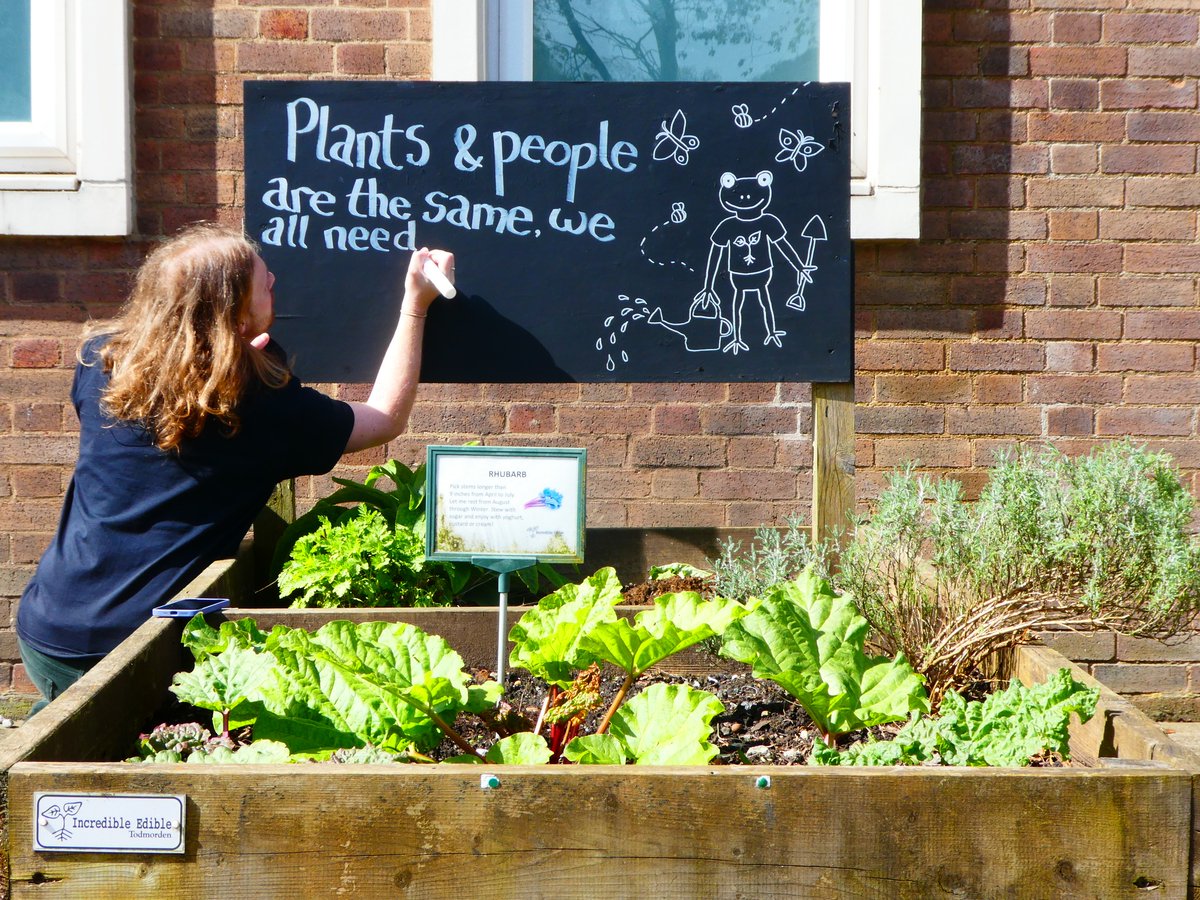 Plants & people
are the same, we
all need
RHUBARB
Pick stems longer than
9 inches from April to July
Let me rest from August
through Winter. Stew with
sugar and enjoy with yoghurt,
custard or cream!
Incredible Edible
Todmorden